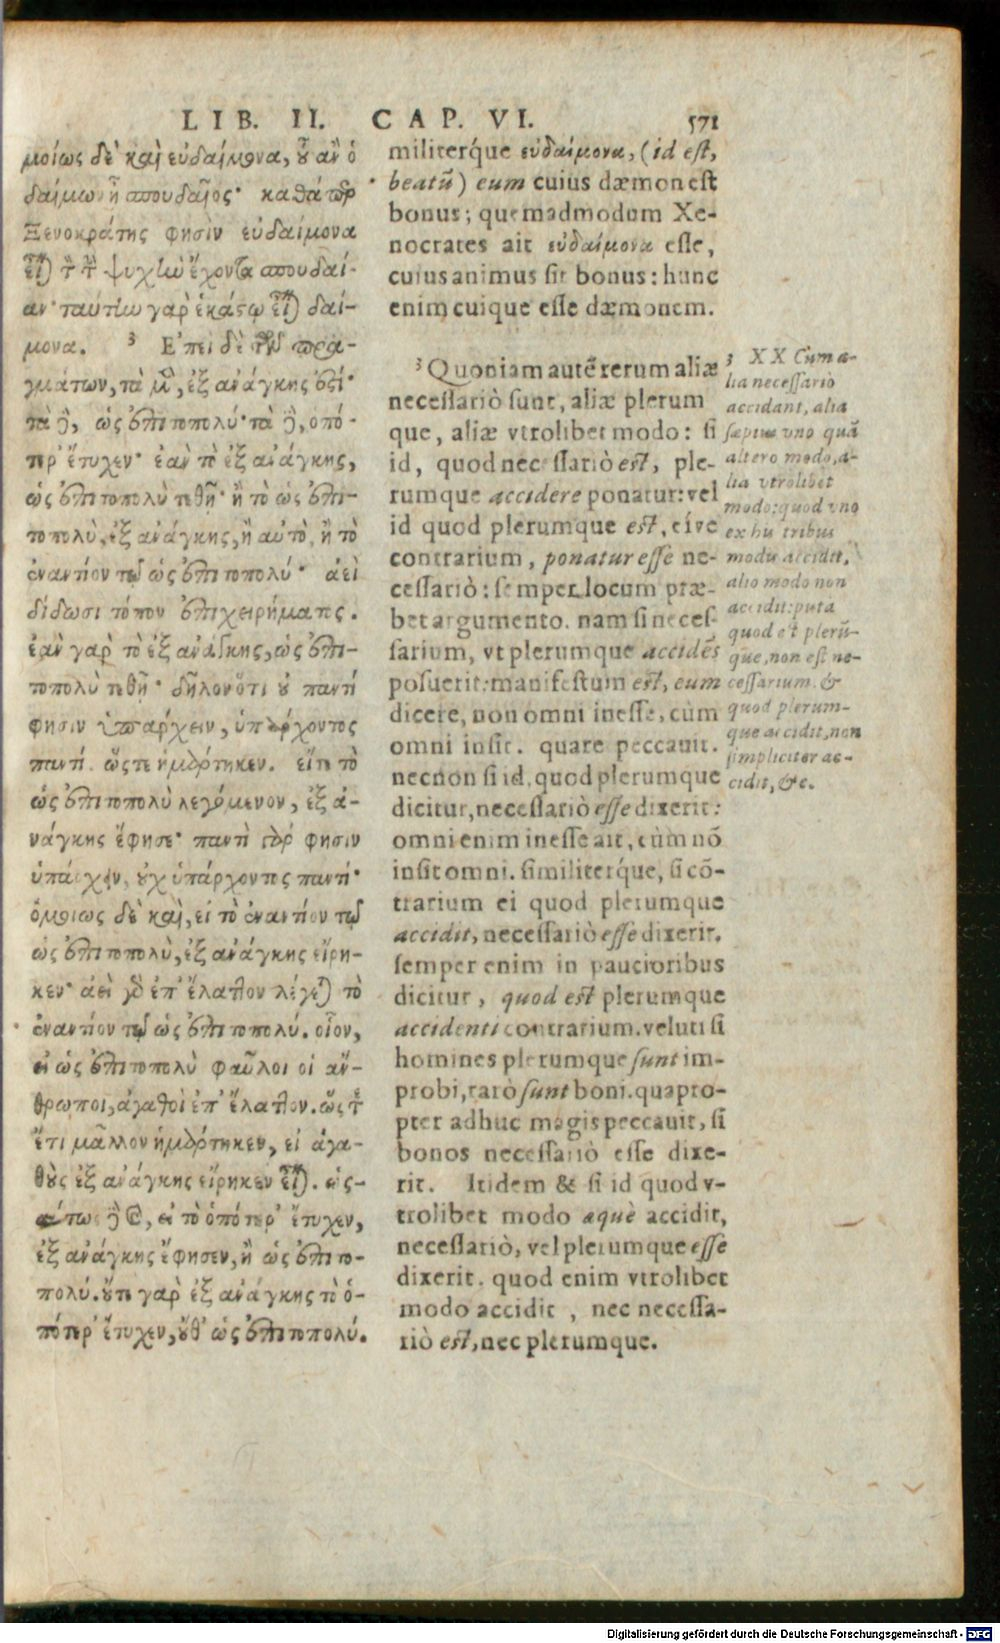 LIB. II. CAP. VI. 571
μοίως δὲ καὶ εὐδαίμονα, οὗ ἂν ὁ
δαίμων ᾖ σπουδαῖος· καθάπερ
Ξενοκράτης φησὶν εὐδαίμονα
εἶναι τὸν τὴν ψυχὴν ἔχοντα σπουδαί-
αν· ταύτην γὰρ ἑκάστῳ εἶναι δαί-
μονα. 3 Ἐπεὶ δὲ τῶν πρα-
γμάτων, τὰ μὲν, ἐξ ἀνάγκης ἐστί·
τὰ δὲ, ὡς ἐπιτοπολύ· τὰ δὲ, ὁπό-
τερ' ἔτυχεν· ἐὰν τὸ ἐξ ἀνάγκης,
ὡς ἐπιτοπολὺ τεθῇ· ἢ τὸ ὡς ἐπι-
τοπολὺ, ἐξ ἀνάγκης, ἢ αὐτὸ, ἢ τὸ
ἐναντίον τῷ ὡς ἐπιτοπολύ· ἀεὶ
δίδωσι τόπον ἐπιχειρήματος.
ἐὰν γὰρ τὸ ἐξ ἀνάγκης, ὡς ἐπι-
τοπολὺ τεθῇ· δῆλον ὅτι οὐ παντί
φησιν ὑπάρχειν, ὑπάρχοντος
παντί. ὥστε ἡμάρτηκεν. εἴτε τὸ
ὡς ἐπιτοπολὺ λεγόμενον, ἐξ ἀ-
νάγκης ἔφησε· παντὶ γάρ φησιν
ὑπάρχειν, οὐχ ὑπάρχοντος παντί·
ὁμοίως δὲ καὶ, εἰ τὸ ἐναντίον τῷ
ὡς ἐπιτοπολὺ, ἐξ ἀνάγκης εἴρη-
κεν· ἀεὶ γὰρ ἐπ' ἔλαττον λέγεται τὸ
ἐναντίον τῷ ὡς ἐπιτοπολύ. οἷον,
εἰ ὡς ἐπιτοπολὺ φαῦλοι οἱ ἄν-
θρωποι, ἀγαθοὶ ἐπ' ἔλαττον. ὥστε
ἔτι μᾶλλον ἡμάρτηκεν, εἰ ἀγα-
θοὺς ἐξ ἀνάγκης εἴρηκεν εἶναι. ὡς-
αύτως δὲ καὶ, εἰ τὸ ὁπότερ' ἔτυχεν,
ἐξ ἀνάγκης ἔφησεν, ἢ ὡς ἐπιτο-
πολύ. οὔτε γὰρ ἐξ ἀνάγκης τὸ ὁ-
πότερ' ἔτυχεν, οὔθ' ὡς ἐπιτοπολύ.
militerq́ue εὐδαίμονα, (id est,
beatũ) eum cuius dæmon est
bonus; quemadmodum Xe-
nocrates ait εὐδαίμονα esse,
cuius animus sit bonus: hunc
enim cuique esse dæmonem.
3 Quoniam autẽ rerum aliæ
necessariò sunt, aliæ plerum
que, aliæ vtrolibet modo: si
id, quod necessariò est, ple-
rumque accidere ponatur: vel
id quod plerumque est, eíve
contrarium, ponatur esse ne-
cessariò: semper locum præ-
bet argumento. nam si neces-
sarium, vt plerumque accidẽs
posuerit: manifestum est, eum
dicere, non omni inesse, cùm
omni insit. quare peccauit.
necnon si id, quod plerumque
dicitur, necessariò esse dixerit:
omni enim inesse ait, cùm nõ
insit omni. similiterq́ue, si cõ-
trarium ei quod plerumque
accidit, necessariò esse dixerit.
semper enim in paucioribus
dicitur, quod est plerumque
accidenti contrarium. veluti si
homines plerumque sunt im-
probi, rarò sunt boni. quapro-
pter adhuc magis peccauit, si
bonos necessariò esse dixe-
rit. Itidem & si id quod v-
trolibet modo æquè accidit,
necessariò, vel plerumque esse
dixerit. quod enim vtrolibet
modo accidit, nec necessa-
riò est, nec plerumque.
3 XX Cùm a-
lia necessariò
accidant, alia
sæpius vno quã
altero modo, a-
lia vtrolibet
modo: quod vno
ex his tribus
modis accidit,
alio modo non
accidit: puta
quod est plerũ-
que, non est ne-
cessarium. &
quod plerum-
que accidit, non
simpliciter ac-
cidit, &c.
Digitalisierung gefördert durch die Deutsche Forschungsgemeinschaft - DFG